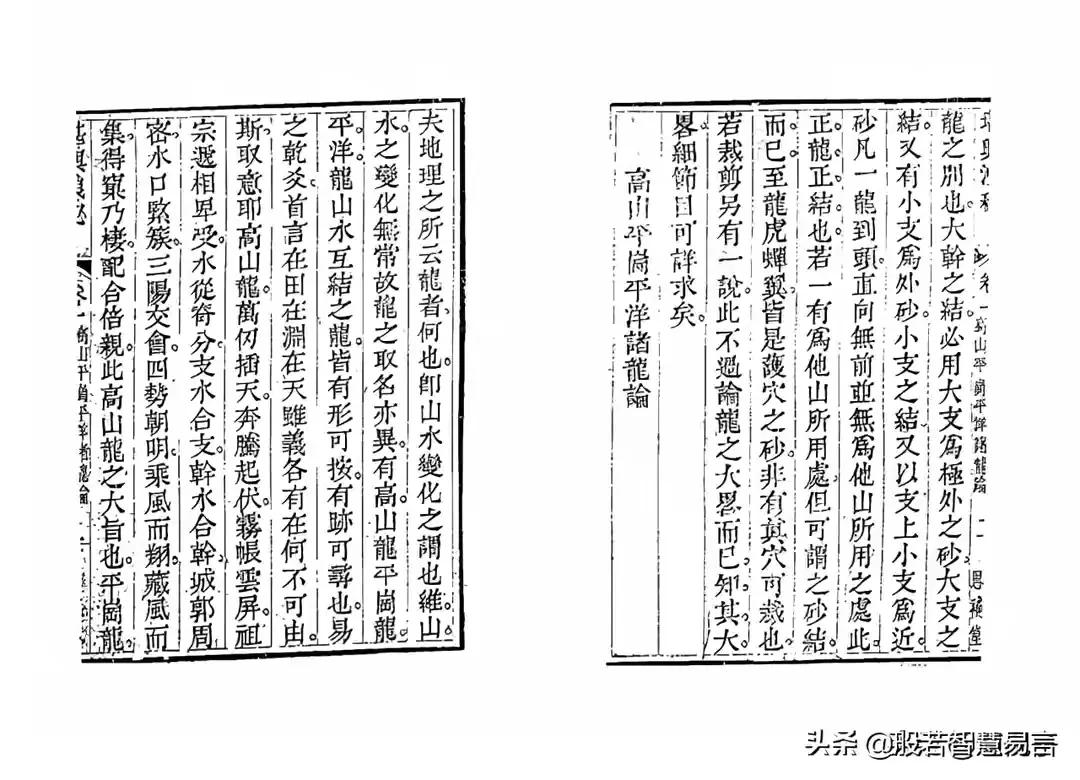 龍之別也。大幹之結必用大支為極外之砂。大支之
結又有小支為外砂。小支之結又以支上小支為近
砂。凡一龍到頭直向無前並無為他山所用之處。此
正龍正結也。若一有為他山所用處。但可謂之砂結
而已。至龍虎蟬翼皆是護穴之砂。非有真穴可裁也。
若裁剪另有一說。此不過論龍之大畧而已。知其大
畧細節目可詳求矣。
高山平崗平洋諸龍論
夫地理之所云龍者何也。卽山水變化之謂也。維山
水之變化無常。故龍之取名亦異。有高山龍平崗龍
平洋龍山水互結之龍。皆有形可按。有跡可尋也。易
之乾爻。首言在田在淵在天。雖義各有在。何不可由
斯取意耶。高山龍萬仞插天。奔騰起伏。霧帳雲屏。祖
宗遞相卑受。水從脊分。支水合支。幹水合幹。城郭周
密。水口緊簇。三陽交會。四勢朝明。乘風而翔。藏風而
集。得窠乃棲。配合倍親。此高山龍之大旨也。平崗龍
头条 @般若智慧易言